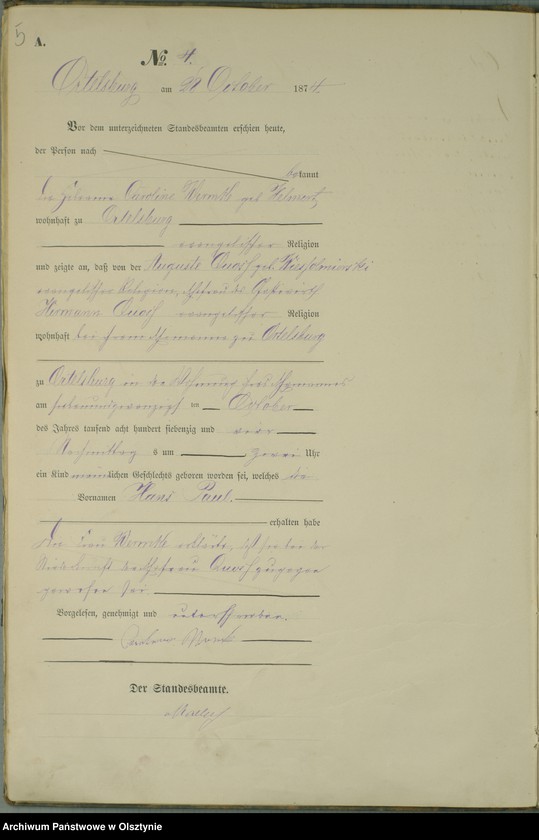 5
A.
No. 4.
Ortelsburg am 28 October 1874.
Vor dem unterzeichneten Standesbeamten erschien heute,
der Person nach
bekannt
die Hebamme Caroline geb.
wohnhaft zu Ortelsburg
evangelischer Religion
und zeigte an, daß von der Auguste Quass geb.
evangelischer Religion, Ehefrau des Gastwirth
Hermann Quass evangelischer Religion
wohnhaft bei ihrem Ehemanne zu Ortelsburg
zu Ortelsburg in der Wohnung ihres Ehemannes
am siebenundzwanzigsten October
des Jahres tausend acht hundert siebenzig und vier
Nachmittags um zwei Uhr
ein Kind männlichen Geschlechts geboren worden sei, welches die
Vornamen Hans Paul.
erhalten habe
Die Frau erklärte, daß sie bei der
Niederkunft der Ehefrau Quass zugegen
gewesen sei.
Vorgelesen, genehmigt und unterschrieben.
Der Standesbeamte.
Archiwum Państwowe w Olsztynie